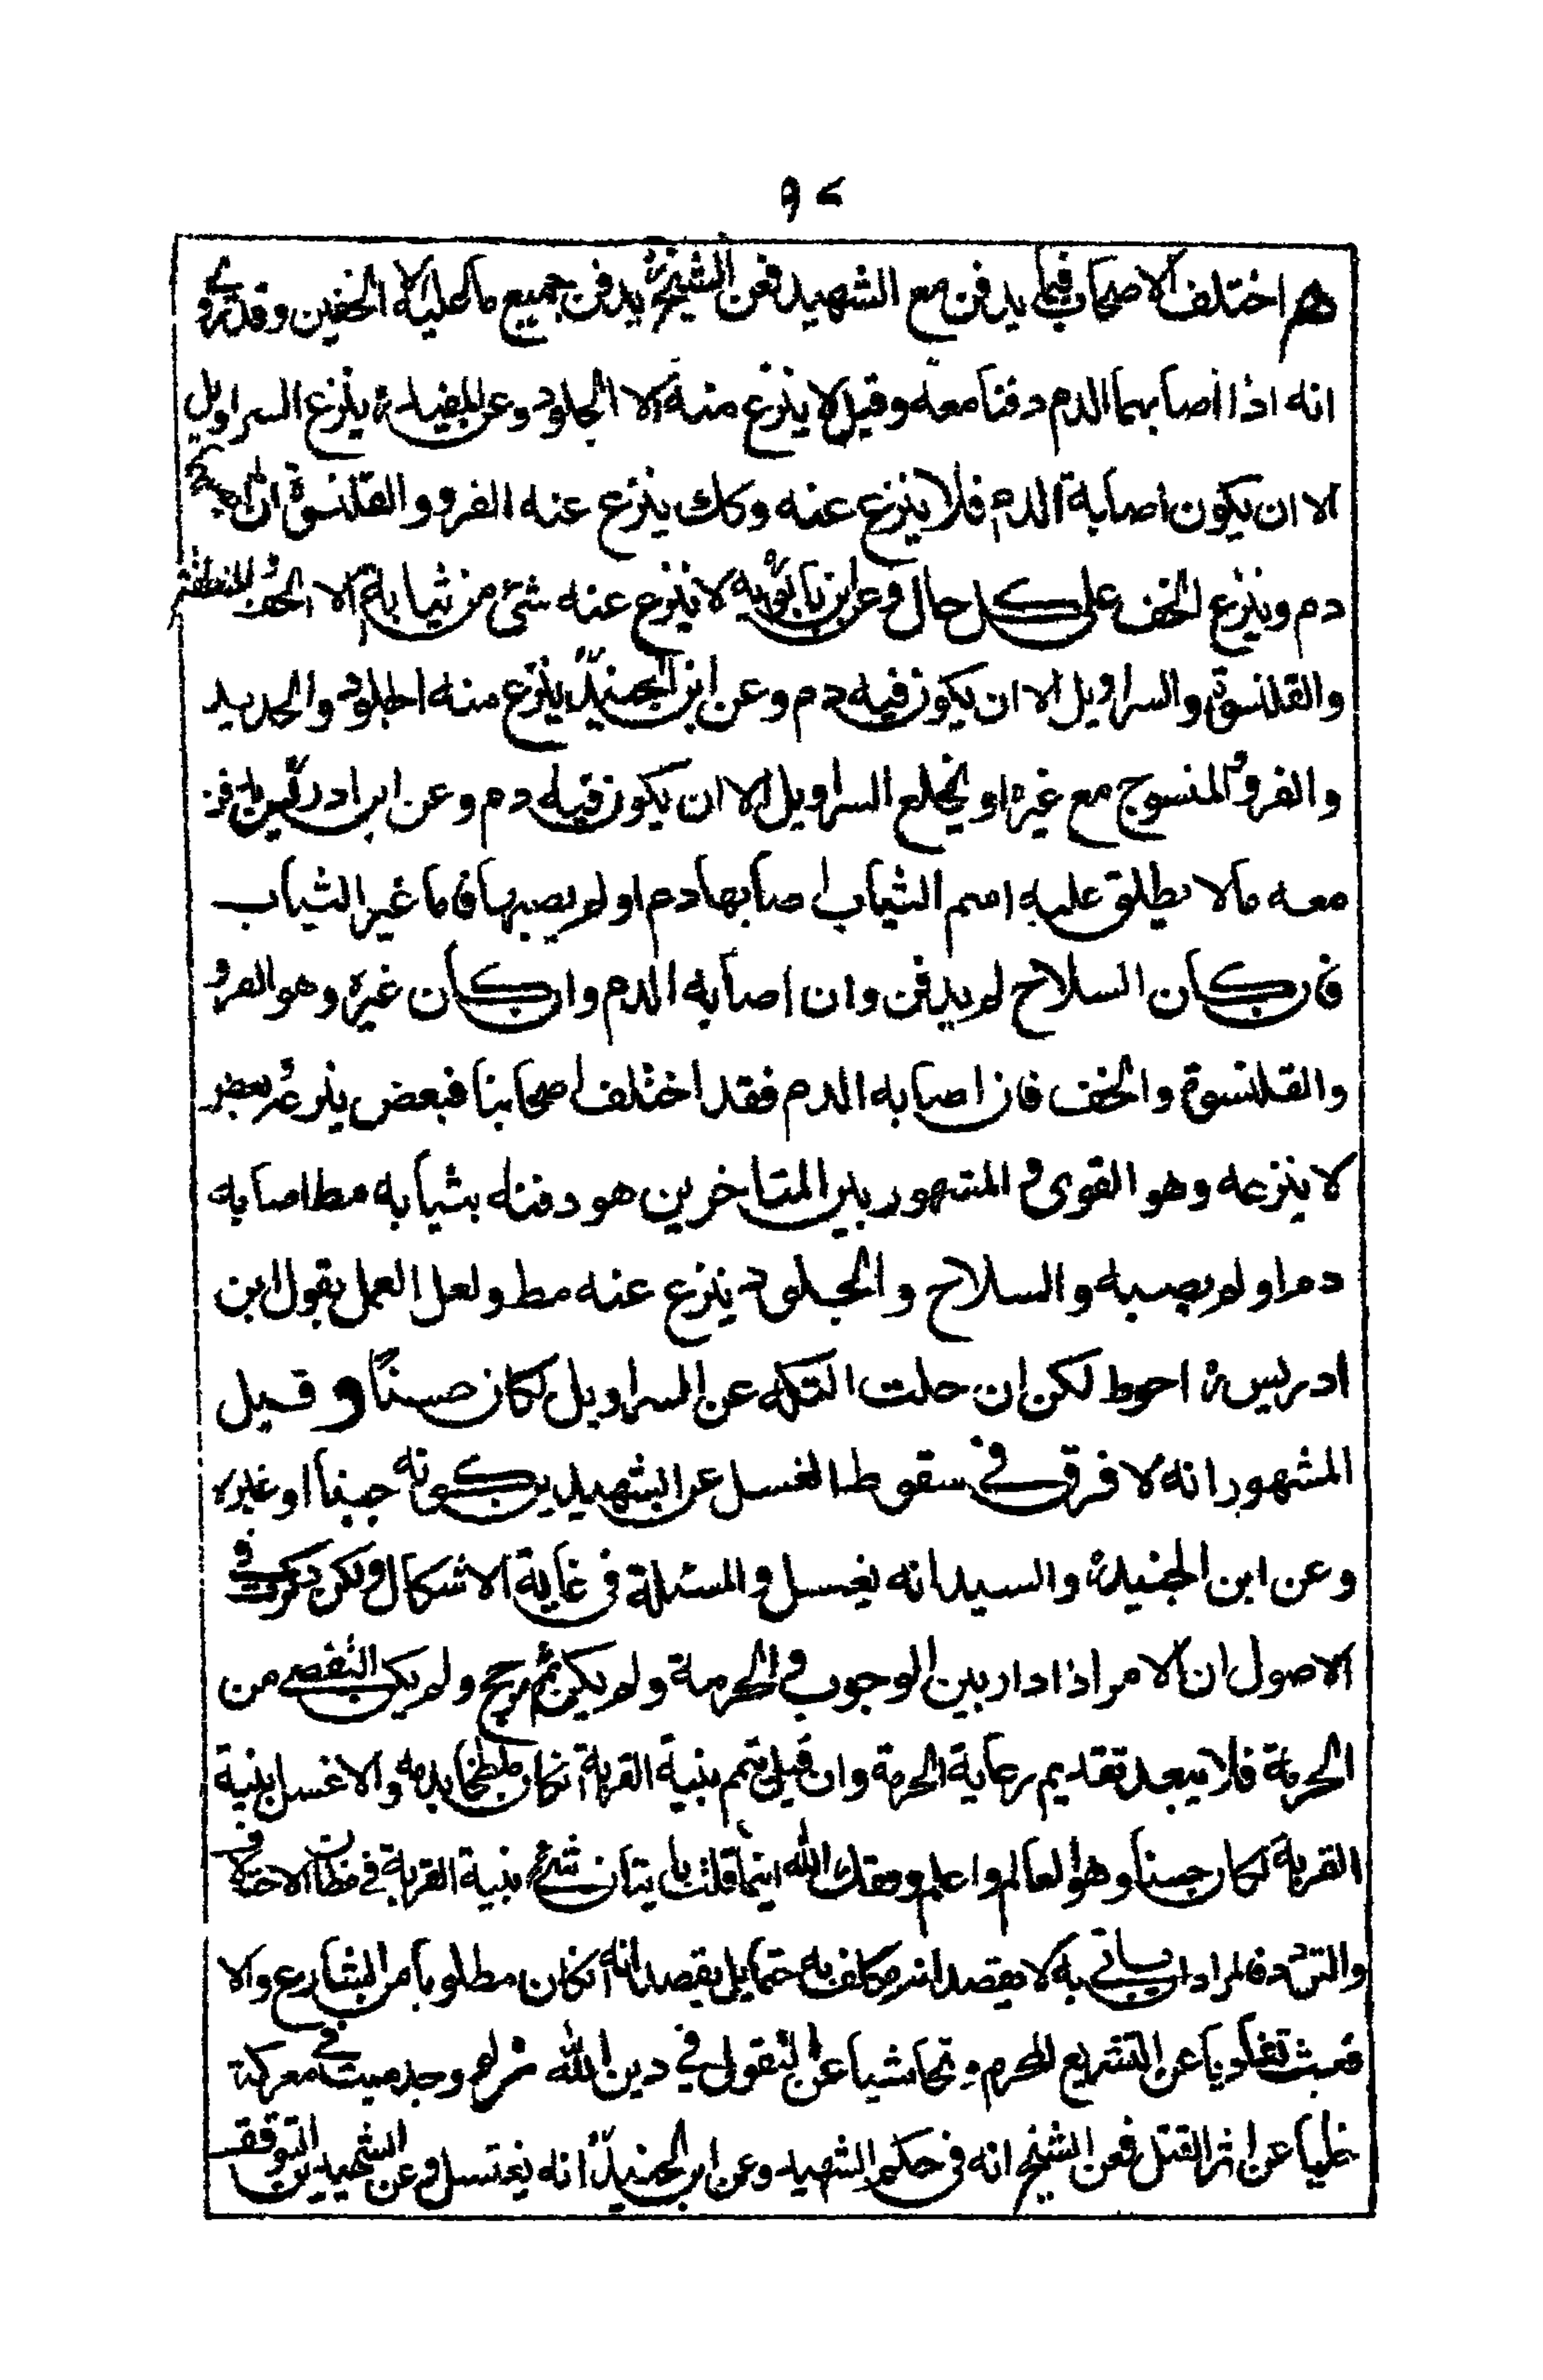 هم اختلف الاصحاب فيما يدفن مع الشهيد فعن الشيخ ره يدفن جميع ما عليه الا الخفين وقد روى
انه اذا اصابهما الدم دفنا معه وقيل لا ينزع منه الا الجلود وعن المفيد ره ينزع السراويل
الا ان يكون اصابة الدم فلا ينزع عنه وكك ينزع عنه الفرو والقلنسوة
دم وينزع الخف على كل حال وعن ابن بابويه لا ينزع عنه شئ من ثيابه الا الخف
والقلنسوة والسراويل الا ان يكون فيه دم وعن ابن الجنيد ينزع منه الجلود والحديد
والفرو المنسوج مع غيره او يخلع السراويل الا ان يكون فيه دم وعن ابن ادريس
معه مالا يطلق عليه اسم الثياب اصابها دم او لم يصبها فاما غير الثياب
فان كان السلاح لم يدفن وان اصابه الدم وان كان غيره وهو الفرو
والقلنسوة والخف فان اصابه الدم فقد اختلف اصحابنا فبعض ينزعه وبعض
لا ينزعه وهو القوى و المشهور بين المتاخرين هو دفنه بثيابه مطا اصابه
دم او لم يصبه والسلاح والجلود ينزع عنه مط ولعل العمل بقول ابن
ادريس ره احوط لكن ان حلت التكه عن السراويل لكان حسنًا و قيل
المشهور انه لا فرق في سقوط الغسل عن الشهيد بين كونه جنبا او غيره
وعن ابن الجنيد ره والسيد انه يغسل و المسئلة فى غاية الاشكال ولكن ذكرت فى
الاصول ان الامر اذا دار بين الوجوب و الحرمة ولم يكن ثم مرجح ولم يكن التفصى من
الحرمة فلا يبعد تقديم رعاية الحرمة وان قيل بنية القربة انكان ملطخا بدمه والا غسل بنية
القربة لكان حسنا وهو العالم واعلم وفقك الله اينما قلت باتيان شئ بنية القربة فى مظان الاختلاف
والتردد فالمراد ان ياتى به لا بقصد انه مكلف به حتما بل بقصد انه انكان مطلوبا من الشارع والا
فعبث تفاديا عن التشريع المحرم و تحاشيا عن التقول في دين الله ثم لو وجد ميت فى معركة
خليا عن اثر القتل فعن الشيخ انه فى حكم الشهيد وعن ابن الجنيد انه يغتسل و عن الشهيدين التوقف